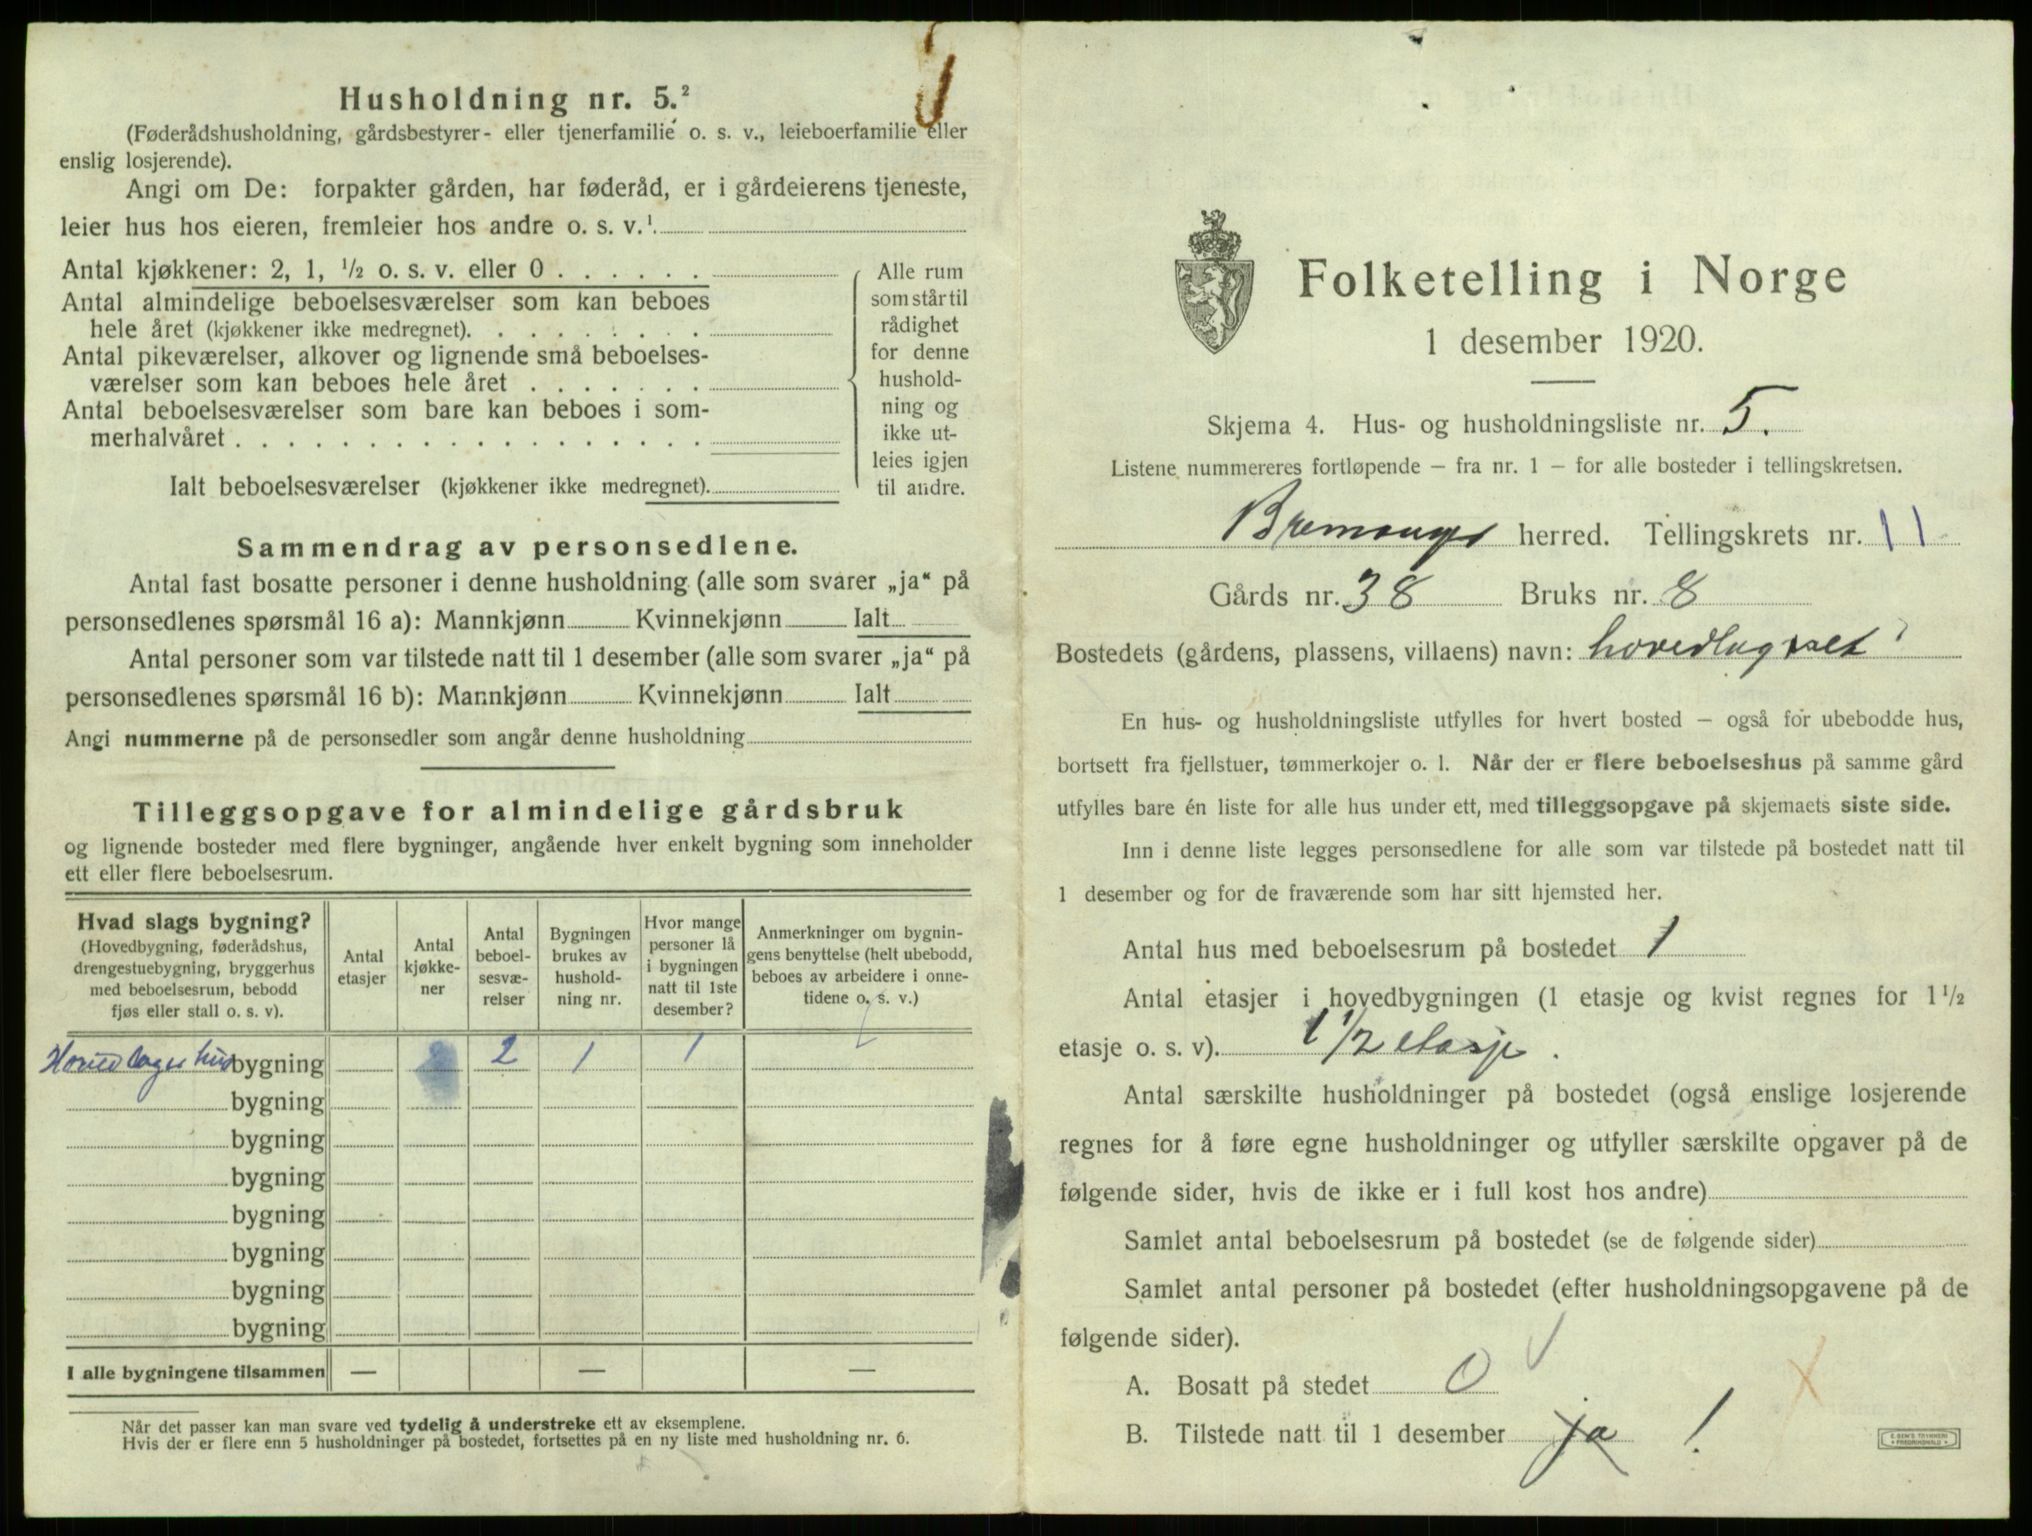 Husholdning nr. 5.²
(Føderådshusholdning, gårdsbestyrer- eller tjenerfamilie o. s. v., leieboerfamilie eller
enslig losjerende).
Angi om De: forpakter gården, har føderåd, er i gårdeierens tjeneste,
leier hus hos eieren, fremleier hos andre o. s. v.¹
Antal kjøkkener: 2, 1, ½ o. s. v. eller 0 . . . . . .
Antal almindelige beboelsesværelser som kan beboes
hele året (kjøkkener ikke medregnet). . . . . . . . .
Antal pikeværelser, alkover og lignende små beboelses-
værelser som kan beboes hele året . . . . . . .
Antal beboelsesværelser som bare kan beboes i som-
merhalvåret . . . . . . . . . . . . . . . . . .
Ialt beboelsesværelser (kjøkkener ikke medregnet).
Alle rum
som står til
rådighet
for denne
hushold-
ning og
ikke ut-
leies igjen
til andre.
Sammendrag av personsedlene.
Antal fast bosatte personer i denne husholdning (alle som svarer „ja“ på
personsedlenes spørsmål 16 a): Mannkjønn Kvinnekjønn Ialt
Antal personer som var tilstede natt til 1 desember (alle som svarer „ja“ på
personsedlenes spørsmål 16 b): Mannkjønn Kvinnekjønn Ialt
Angi nummerne på de personsedler som angår denne husholdning
Tilleggsopgave for almindelige gårdsbruk
og lignende bosteder med flere bygninger, angående hver enkelt bygning som inneholder
ett eller flere beboelsesrum.
Hvad slags bygning?
(Hovedbygning, føderådshus,
drengestuebygning, bryggerhus
med beboelsesrum, bebodd
fjøs eller stall o. s. v).
Antal
etasjer
Antal
kjøkke-
ner
Antal
beboel-
sesvæ-
relser
Bygningen
brukes av
hushold-
ning nr.
Hvor mange
personer lå
i bygningen
natt til 1ste
desember?
Anmerkninger om bygnin-
gens benyttelse (helt ubebodd,
beboes av arbeidere i onne-
tidene o. s. v.)
bygning 2 1 1
bygning
bygning
bygning
bygning
bygning
bygning
bygning
I alle bygningene tilsammen — — —
Når det passer kan man svare ved tydelig å understreke ett av eksemplene.
Hvis der er flere enn 5 husholdninger på bostedet, fortsettes på en ny liste med husholdning nr. 6.
Folketelling i Norge
1 desember 1920.
Skjema 4. Hus- og husholdningsliste nr. 5.
Listene nummereres fortløpende – fra nr. 1 – for alle bosteder i tellingskretsen.
Bremanger herred. Tellingskrets nr. 11
Gårds nr. 38 Bruks nr. 8
Bostedets (gårdens, plassens, villaens) navn:
En hus- og husholdningsliste utfylles for hvert bosted – også for ubebodde hus,
bortsett fra fjellstuer, tømmerkojer o. l. Når der er flere beboelseshus på samme gård
utfylles bare én liste for alle hus under ett, med tilleggsopgave på skjemaets siste side.
Inn i denne liste legges personsedlene for alle som var tilstede på bostedet natt til
1 desember og for de fraværende som har sitt hjemsted her.
Antal hus med beboelsesrum på bostedet 1
Antal etasjer i hovedbygningen (1 etasje og kvist regnes for 1½
etasje o. s. v). 1 1/2 etasje.
Antal særskilte husholdninger på bostedet (også enslige losjerende
regnes for å føre egne husholdninger og utfyller særskilte opgaver på de
følgende sider, hvis de ikke er i full kost hos andre)
Samlet antal beboelsesrum på bostedet (se de følgende sider)
Samlet antal personer på bostedet (efter husholdningsopgavene på de
følgende sider).
A. Bosatt på stedet 0
B. Tilstede natt til 1 desember ja !